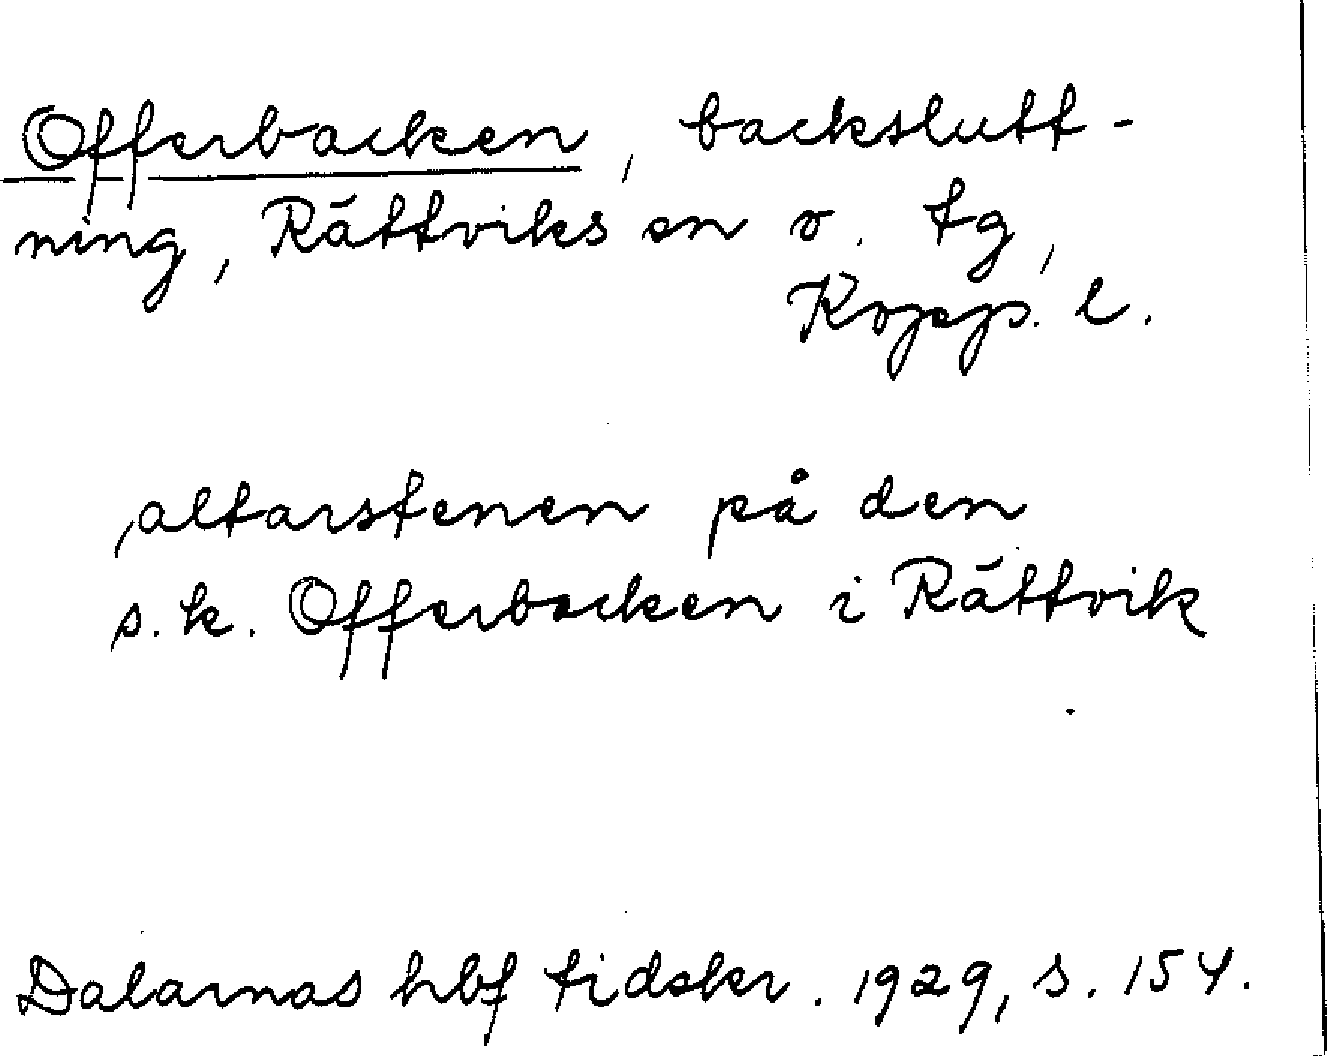 Offerbacken, backslutt-
ning, Rättviks sn o. tg,
Kopp. l.
altarstenen på den
s.k. Offerbacken i Rättvik
Dalarnas hbf tidskr. 1929, s. 154.